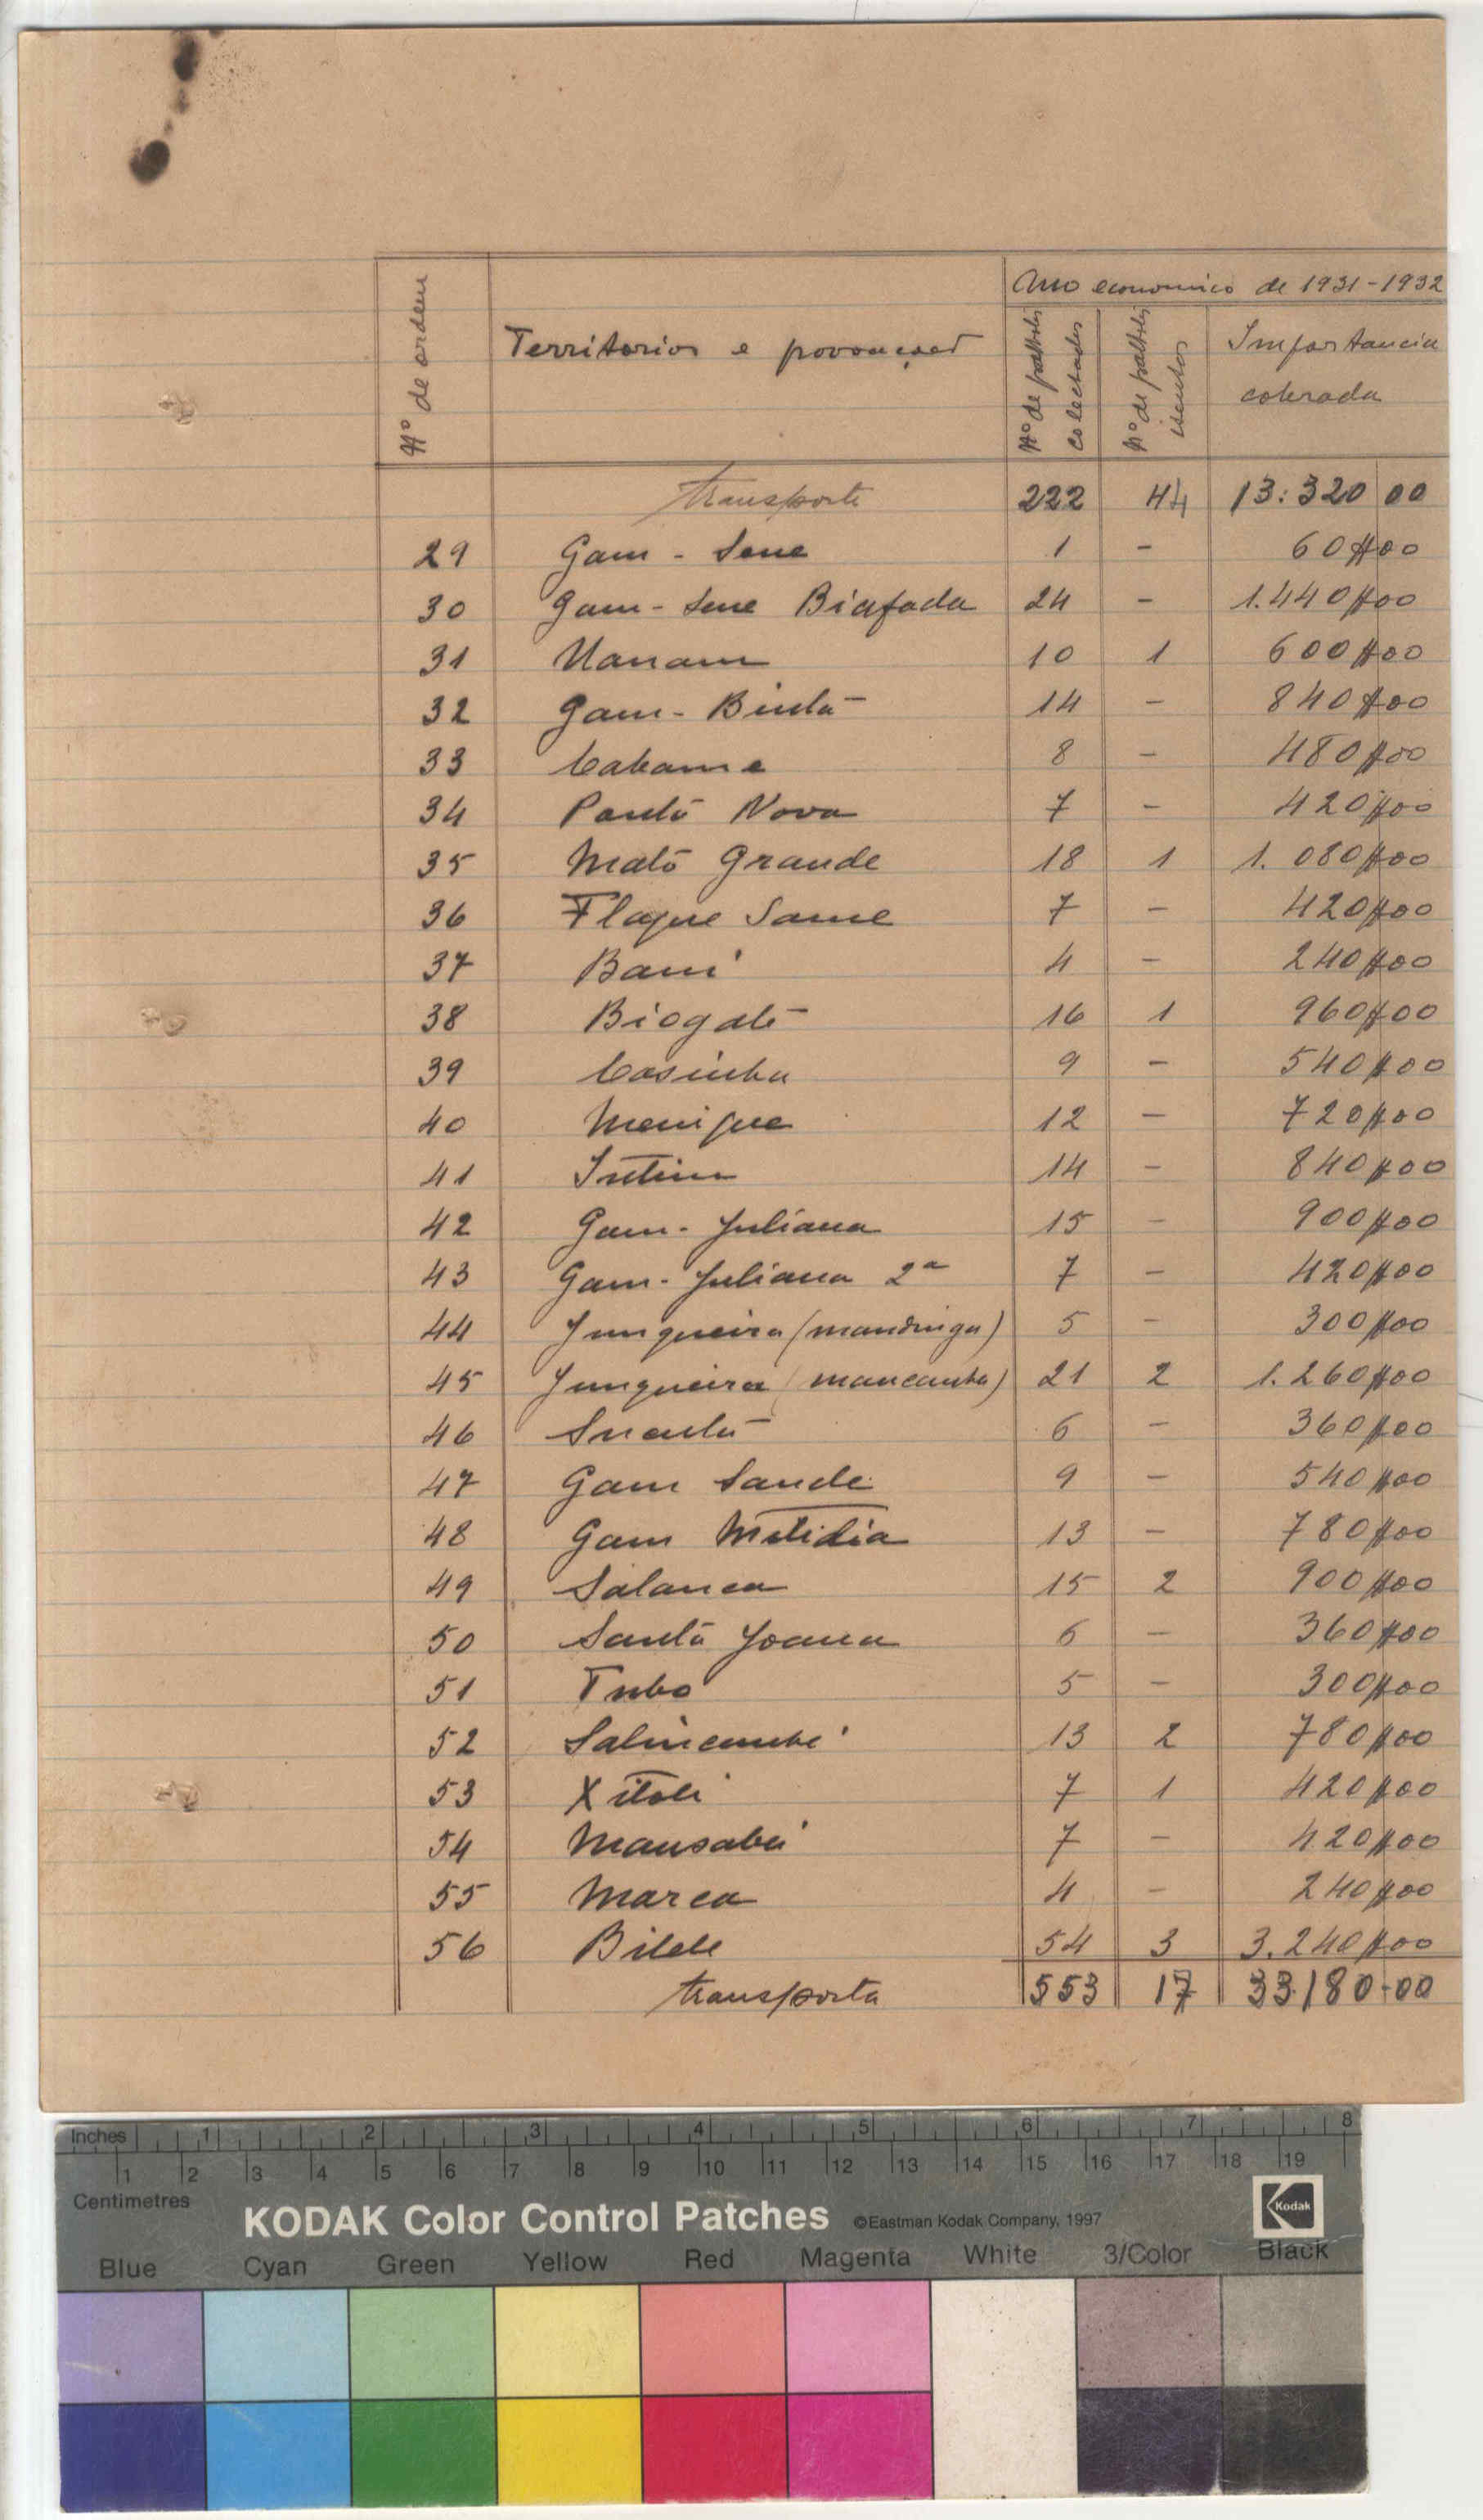 Ano economico de 1931-1932
Nº de ordem
Territorios e povoações
Nº de palhotas colectadas
Nº de palhotas isentas
Importancia cobrada
Transporte 222 44 13:320 00
29 Gam - Sene 1 - 60$00
30 Gam - Sene Biafada 24 - 1.440$00
31 Nanam 10 1 600$00
32 Gam - Bintá 14 - 840$00
33 8 - 480$00
34 Nova 7 - 420$00
35 Mató Grande 18 1 1.080$00
36 Flaque Same 7 - 420$00
37 Bani 4 - 240$00
38 Biogaté 16 1 960$00
39 Cosinha 9 - 540$00
40 Menique 12 - 720$00
41 Intim 14 - 840$00
42 Gam - Juliana 15 - 900$00
43 Gam - Juliana 2ª 7 - 420$00
44 Junqueira (mandinga) 5 - 300$00
45 Junqueira (mancanha) 21 2 1.260$00
46 6 - 360$00
47 Gam Sande 9 - 540$00
48 Gam 13 - 780$00
49 Salanca 15 2 900$00
50 Santa Joana 6 - 360$00
51 Tubo 5 - 300$00
52 13 2 780$00
53 Xitoli 7 1 420$00
54 Mansabá 7 - 420$00
55 Marca 4 - 240$00
56 54 3 3.240$00
Transporta 553 17 33.180-00
Inches 1 2 3 4 5 6 7 8
1 2 3 4 5 6 7 8 9 10 11 12 13 14 15 16 17 18 19
Centimetres
KODAK Color Control Patches ©Eastman Kodak Company, 1997 Kodak
Blue Cyan Green Yellow Red Magenta White 3/Color Black